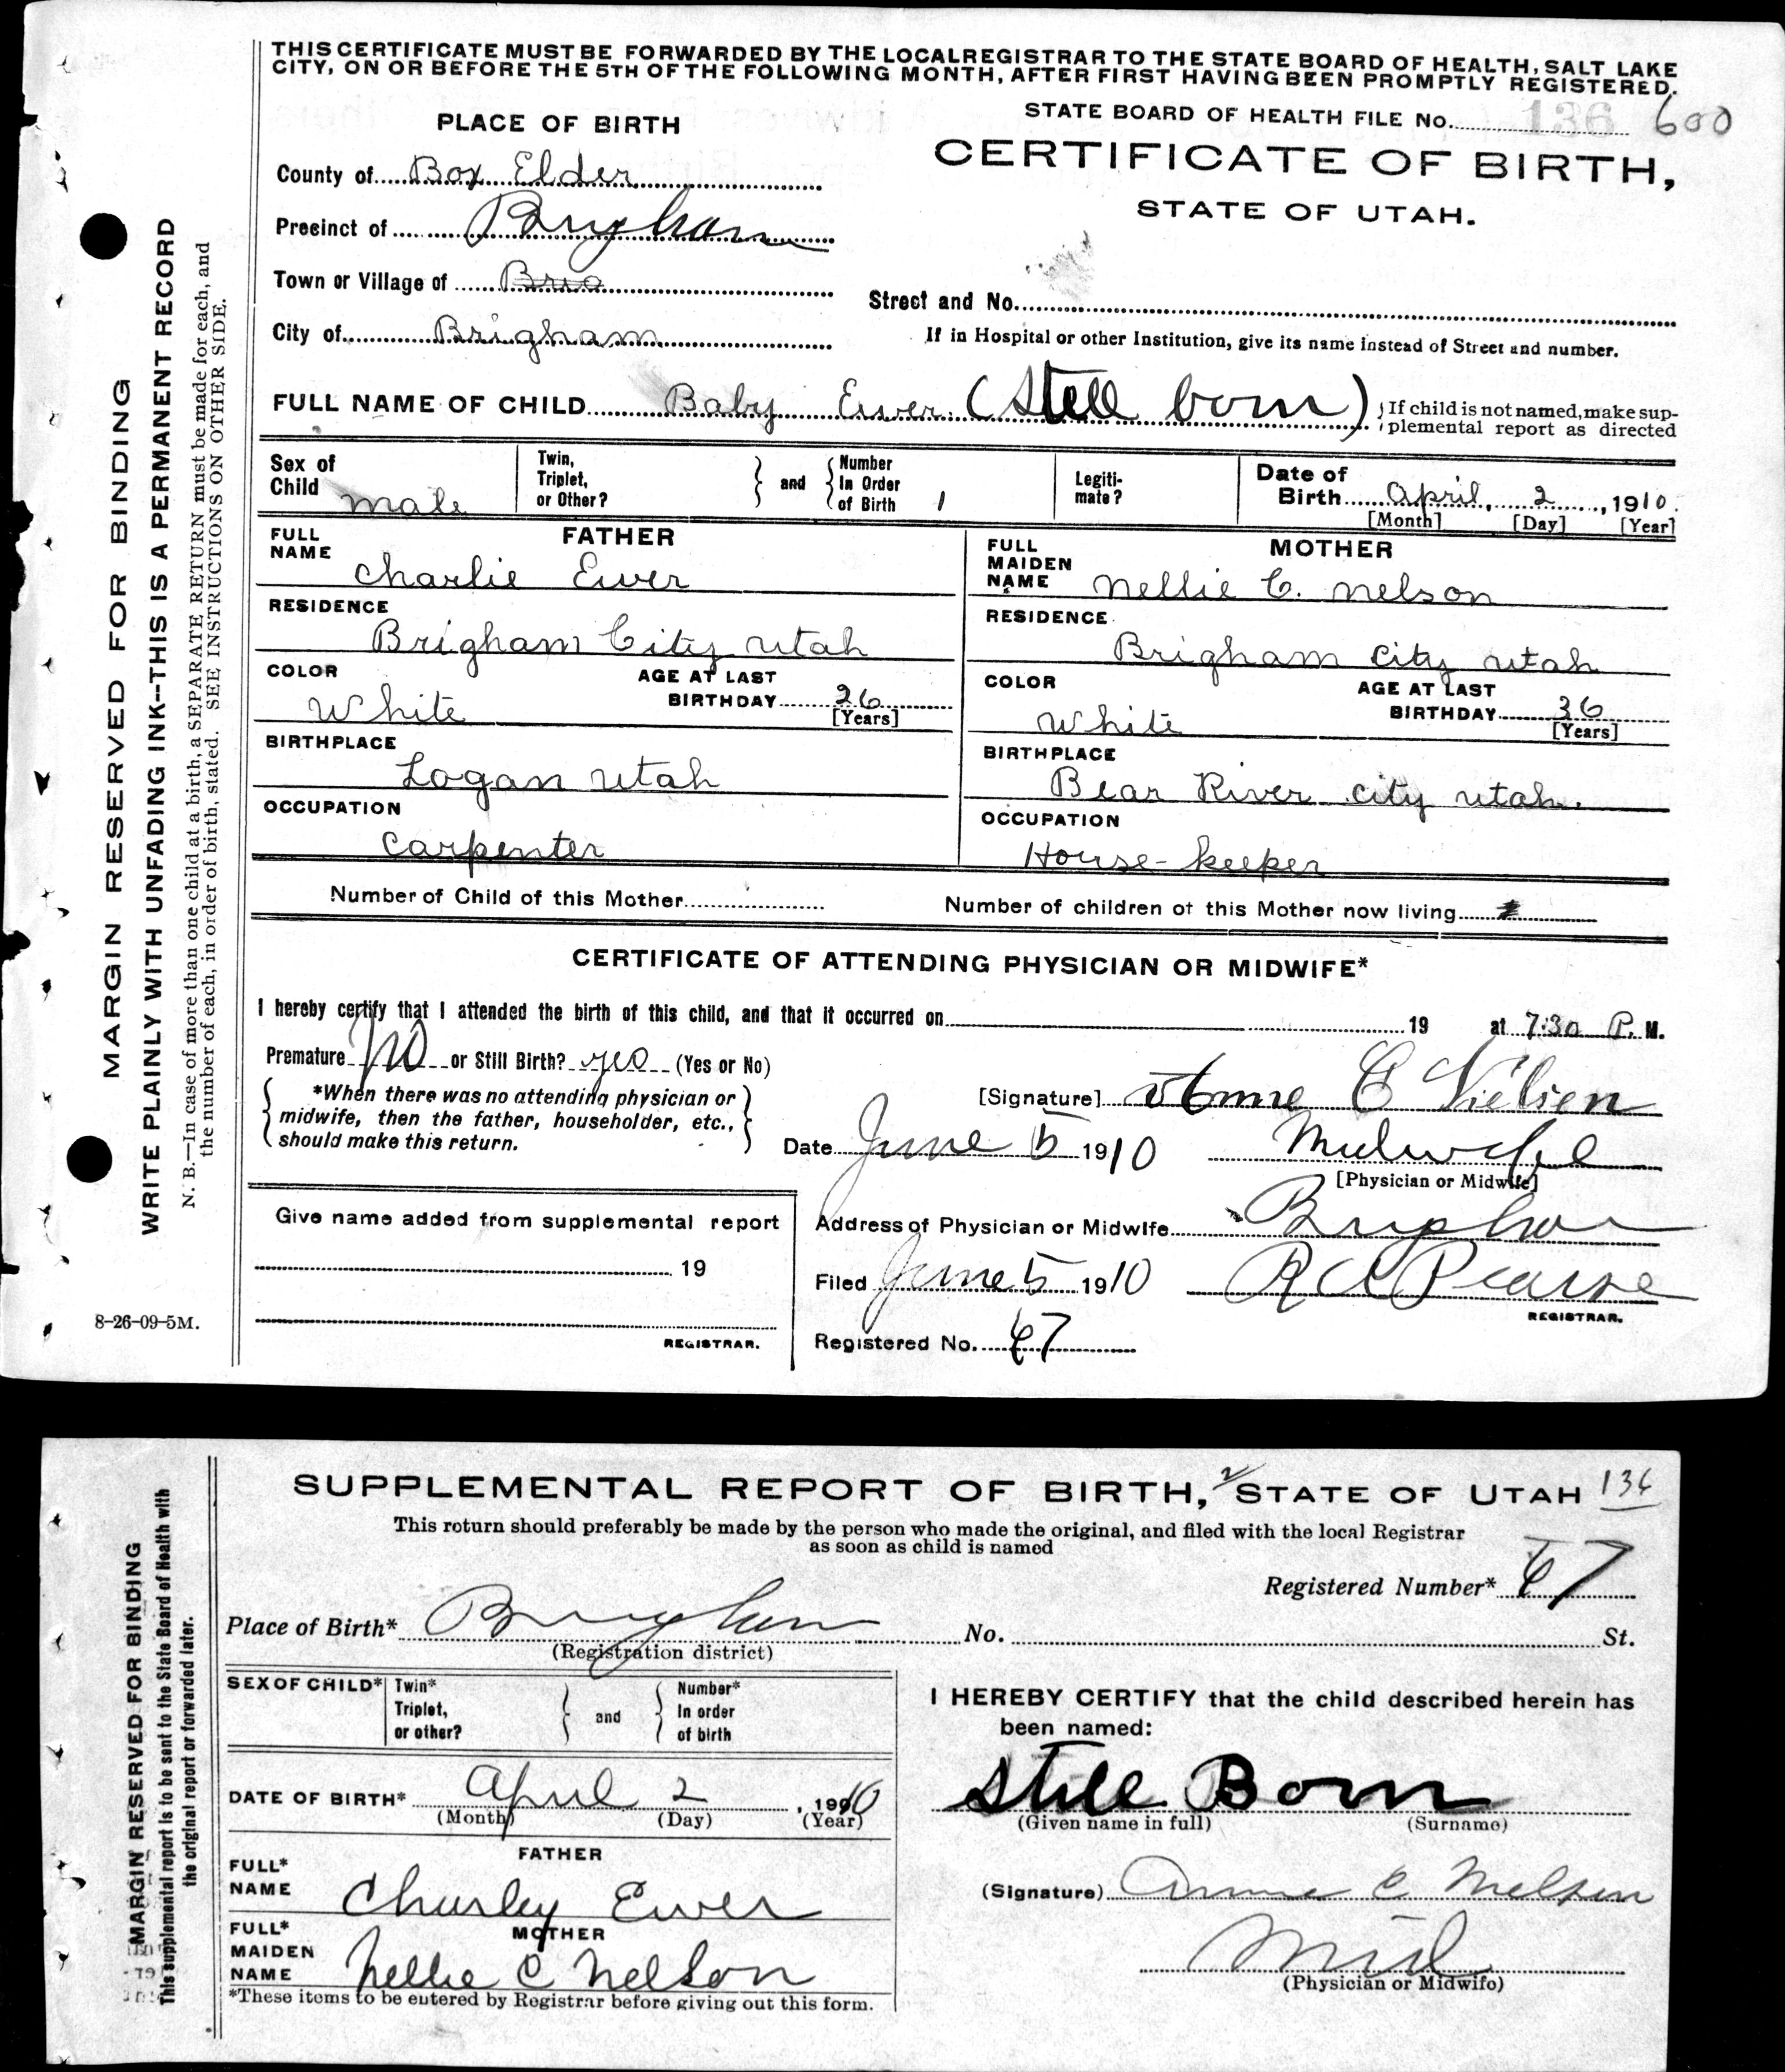 THIS CERTIFICATE MUST BE FORWARDED BY THE LOCAL REGISTRAR TO THE STATE BOARD OF HEALTH, SALT LAKE
CITY, ON OR BEFORE THE 5TH OF THE FOLLOWING MONTH, AFTER FIRST HAVING BEEN PROMPTLY REGISTERED.
STATE BOARD OF HEALTH FILE No. 136 600
PLACE OF BIRTH
CERTIFICATE OF BIRTH,
STATE OF UTAH.
County of Box Elder
Precinct of Brigham
Town or Village of Brig
Street and No.
City of Brigham
If in Hospital or other Institution, give its name instead of Street and number.
FULL NAME OF CHILD Baby Ewer (Still born)
If child is not named, make sup-
plemental report as directed
Sex of Child male
Twin, Triplet, or Other?
and
Number In Order of Birth 1
Legiti-mate?
Date of Birth April 2, 1910.
[Month] [Day] [Year]
FATHER
FULL NAME Charlie Ewer
RESIDENCE
Brigham City Utah
COLOR
White
AGE AT LAST BIRTHDAY 26
[Years]
BIRTHPLACE
Logan Utah
OCCUPATION
Carpenter
MOTHER
FULL MAIDEN NAME Nellie C. Nelson
RESIDENCE
Brigham City Utah
COLOR
White
AGE AT LAST BIRTHDAY 36
[Years]
BIRTHPLACE
Bear River City Utah.
OCCUPATION
House-keeper
Number of Child of this Mother
Number of children of this Mother now living
CERTIFICATE OF ATTENDING PHYSICIAN OR MIDWIFE*
I hereby certify that I attended the birth of this child, and that it occurred on 19 at 7:30 P. M.
Premature No or Still Birth? yes (Yes or No)
*When there was no attending physician or
midwife, then the father, householder, etc.,
should make this return.
[Signature] Anne C Nielsen
Date June 5 1910 Midwife
[Physician or Midwife]
Give name added from supplemental report
19
REGISTRAR.
Address of Physician or Midwife Brigham
Filed June 5 1910 R A Pearse
REGISTRAR.
Registered No. 67
MARGIN RESERVED FOR BINDING
WRITE PLAINLY WITH UNFADING INK--THIS IS A PERMANENT RECORD
N. B.—In case of more than one child at a birth, a SEPARATE RETURN must be made for each, and
the number of each, in order of birth, stated. SEE INSTRUCTIONS ON OTHER SIDE.
8-26-09-5M.
SUPPLEMENTAL REPORT OF BIRTH, 2 STATE OF UTAH 136
This return should preferably be made by the person who made the original, and filed with the local Registrar
as soon as child is named
Registered Number* 67
Place of Birth* Brigham No. St.
(Registration district)
SEX OF CHILD*
Twin* Triplet, or other?
and
Number* In order of birth
DATE OF BIRTH* April 2, 1910
(Month) (Day) (Year)
FATHER
FULL* NAME Charley Ewer
MOTHER
FULL* MAIDEN NAME Nellie C Nelson
*These items to be entered by Registrar before giving out this form.
I HEREBY CERTIFY that the child described herein has
been named:
Still Born
(Given name in full) (Surname)
(Signature) Anne C Nielsen
Mid
(Physician or Midwife)
MARGIN RESERVED FOR BINDING
This supplemental report is to be sent to the State Board of Health with
the original report or forwarded later.